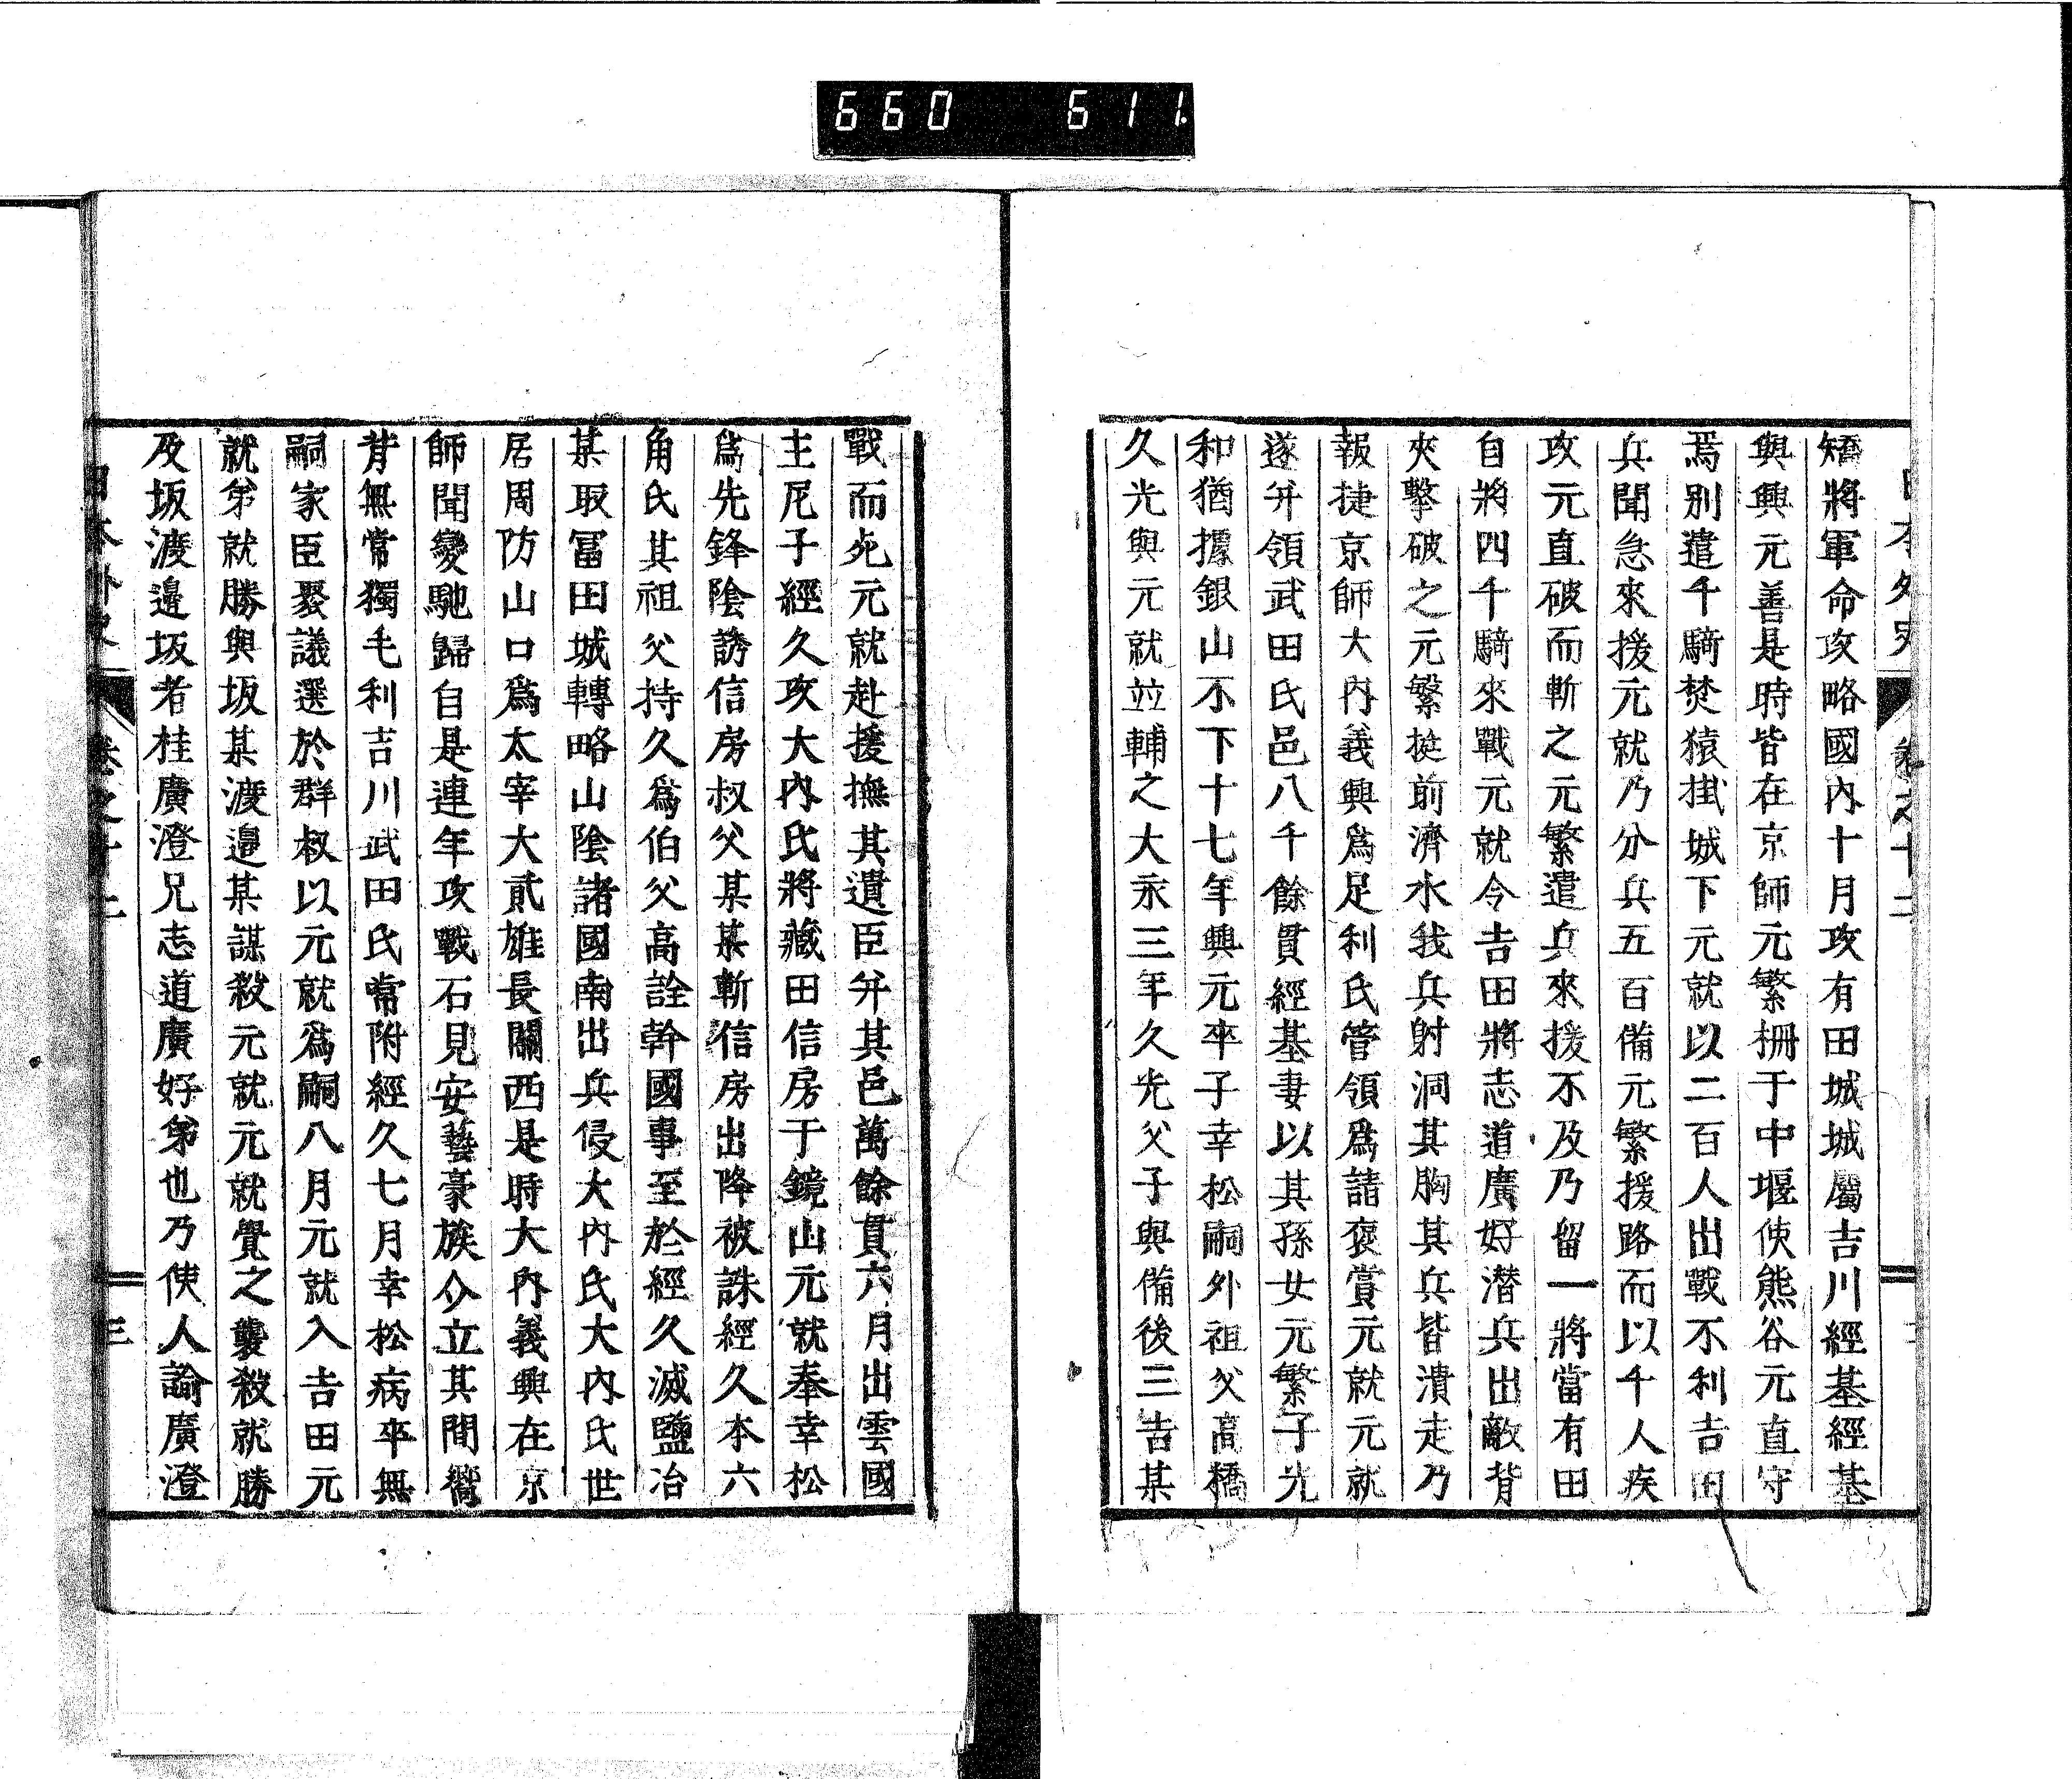 660 611.
日本外史 卷之十二
矯將軍命攻略國內十月攻有田城城屬吉川經基經基
與興元善是時皆在京師元繁柵于中堰使熊谷元直守
焉別遣千騎焚猿掛城下元就以二百人出戰不利吉田
兵聞急來援元就乃分兵五百備元繁援路而以千人疾
攻元直破而斬之元繁遣兵來援不及乃留一將當有田
自將四千騎來戰元就令吉田將志道廣好潛兵出敵背
夾擊破之元繁挺前濟水我兵射洞其胸其兵皆潰走乃
報捷京師大內義興爲足利氏管領爲請褒賞元就元就
遂并領武田氏邑八千餘貫經基妻以其孫女元繁子光
和猶據銀山不下十七年興元卒子幸松嗣外祖父高橋
久光與元就竝輔之大永三年久光父子與備後三吉某
戰而死元就赴援撫其遺臣并其邑萬餘貫六月出雲國
主尼子經久攻大內氏將藏田信房于鏡山元就奉幸松
爲先鋒陰誘信房叔父某某斬信房出降被誅經久本六
角氏其祖父持久爲伯父高詮幹國事至於經久滅鹽冶
某取冨田城轉略山陰諸國南出兵侵大內氏大內氏世
居周防山口爲太宰大貳雄長關西是時大內義興在京
師聞變馳歸自是連年攻戰石見安藝豪族介立其間嚮
背無常獨毛利吉川武田氏常附經久七月幸松病卒無
嗣家臣聚議選於群叔以元就爲嗣八月元就入吉田元
就弟就勝與坂某渡邊某謀殺元就元就覺之襲殺就勝
及坂渡邊坂者桂廣澄兄志道廣好弟也乃使人諭廣澄
日本外史 卷之十二 三